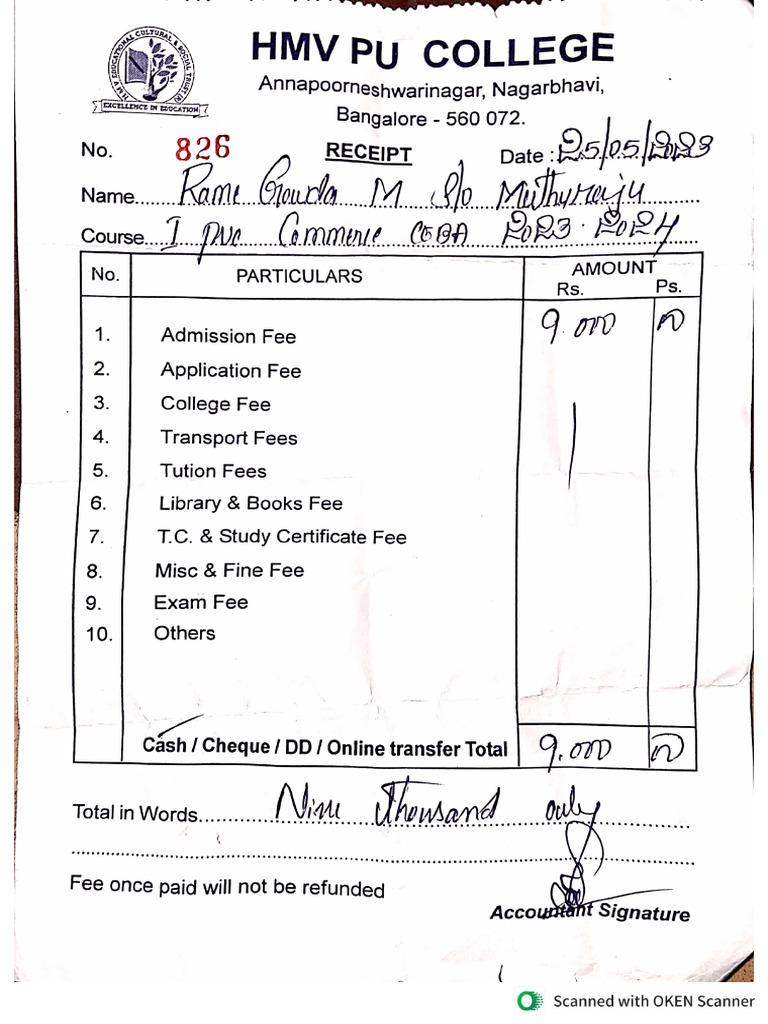 H M V EDUCATIONAL CULTURAL & SOCIAL TRUST (R)
EXCELLENCE IN EDUCATION
HMV PU COLLEGE
Annapoorneshwarinagar, Nagarbhavi,
Bangalore - 560 072.
No. 826 RECEIPT Date : 25/05/2023
Name Rame Gowda M S/o Muthyraju
Course I PUC Commerce CEBA 2023 - 2024
No. PARTICULARS AMOUNT
Rs. Ps.
1. Admission Fee 9.000 00
2. Application Fee
3. College Fee
4. Transport Fees
5. Tution Fees
6. Library & Books Fee
7. T.C. & Study Certificate Fee
8. Misc & Fine Fee
9. Exam Fee
10. Others
Cash / Cheque / DD / Online transfer Total 9.000 00
Total in Words Nine Thousand only
Fee once paid will not be refunded
Accountant Signature
Scanned with OKEN Scanner